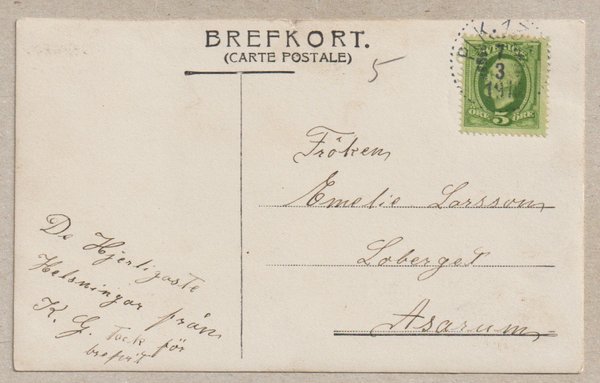 BREFKORT.
(CARTE POSTALE)
5
SVERIGE
3
ÖRE 5 ÖRE
Fröken
Emelie Larsson
Loberget
Asarum
De Hjertligaste
Helsningar från
K. G. Tack för
brefvet